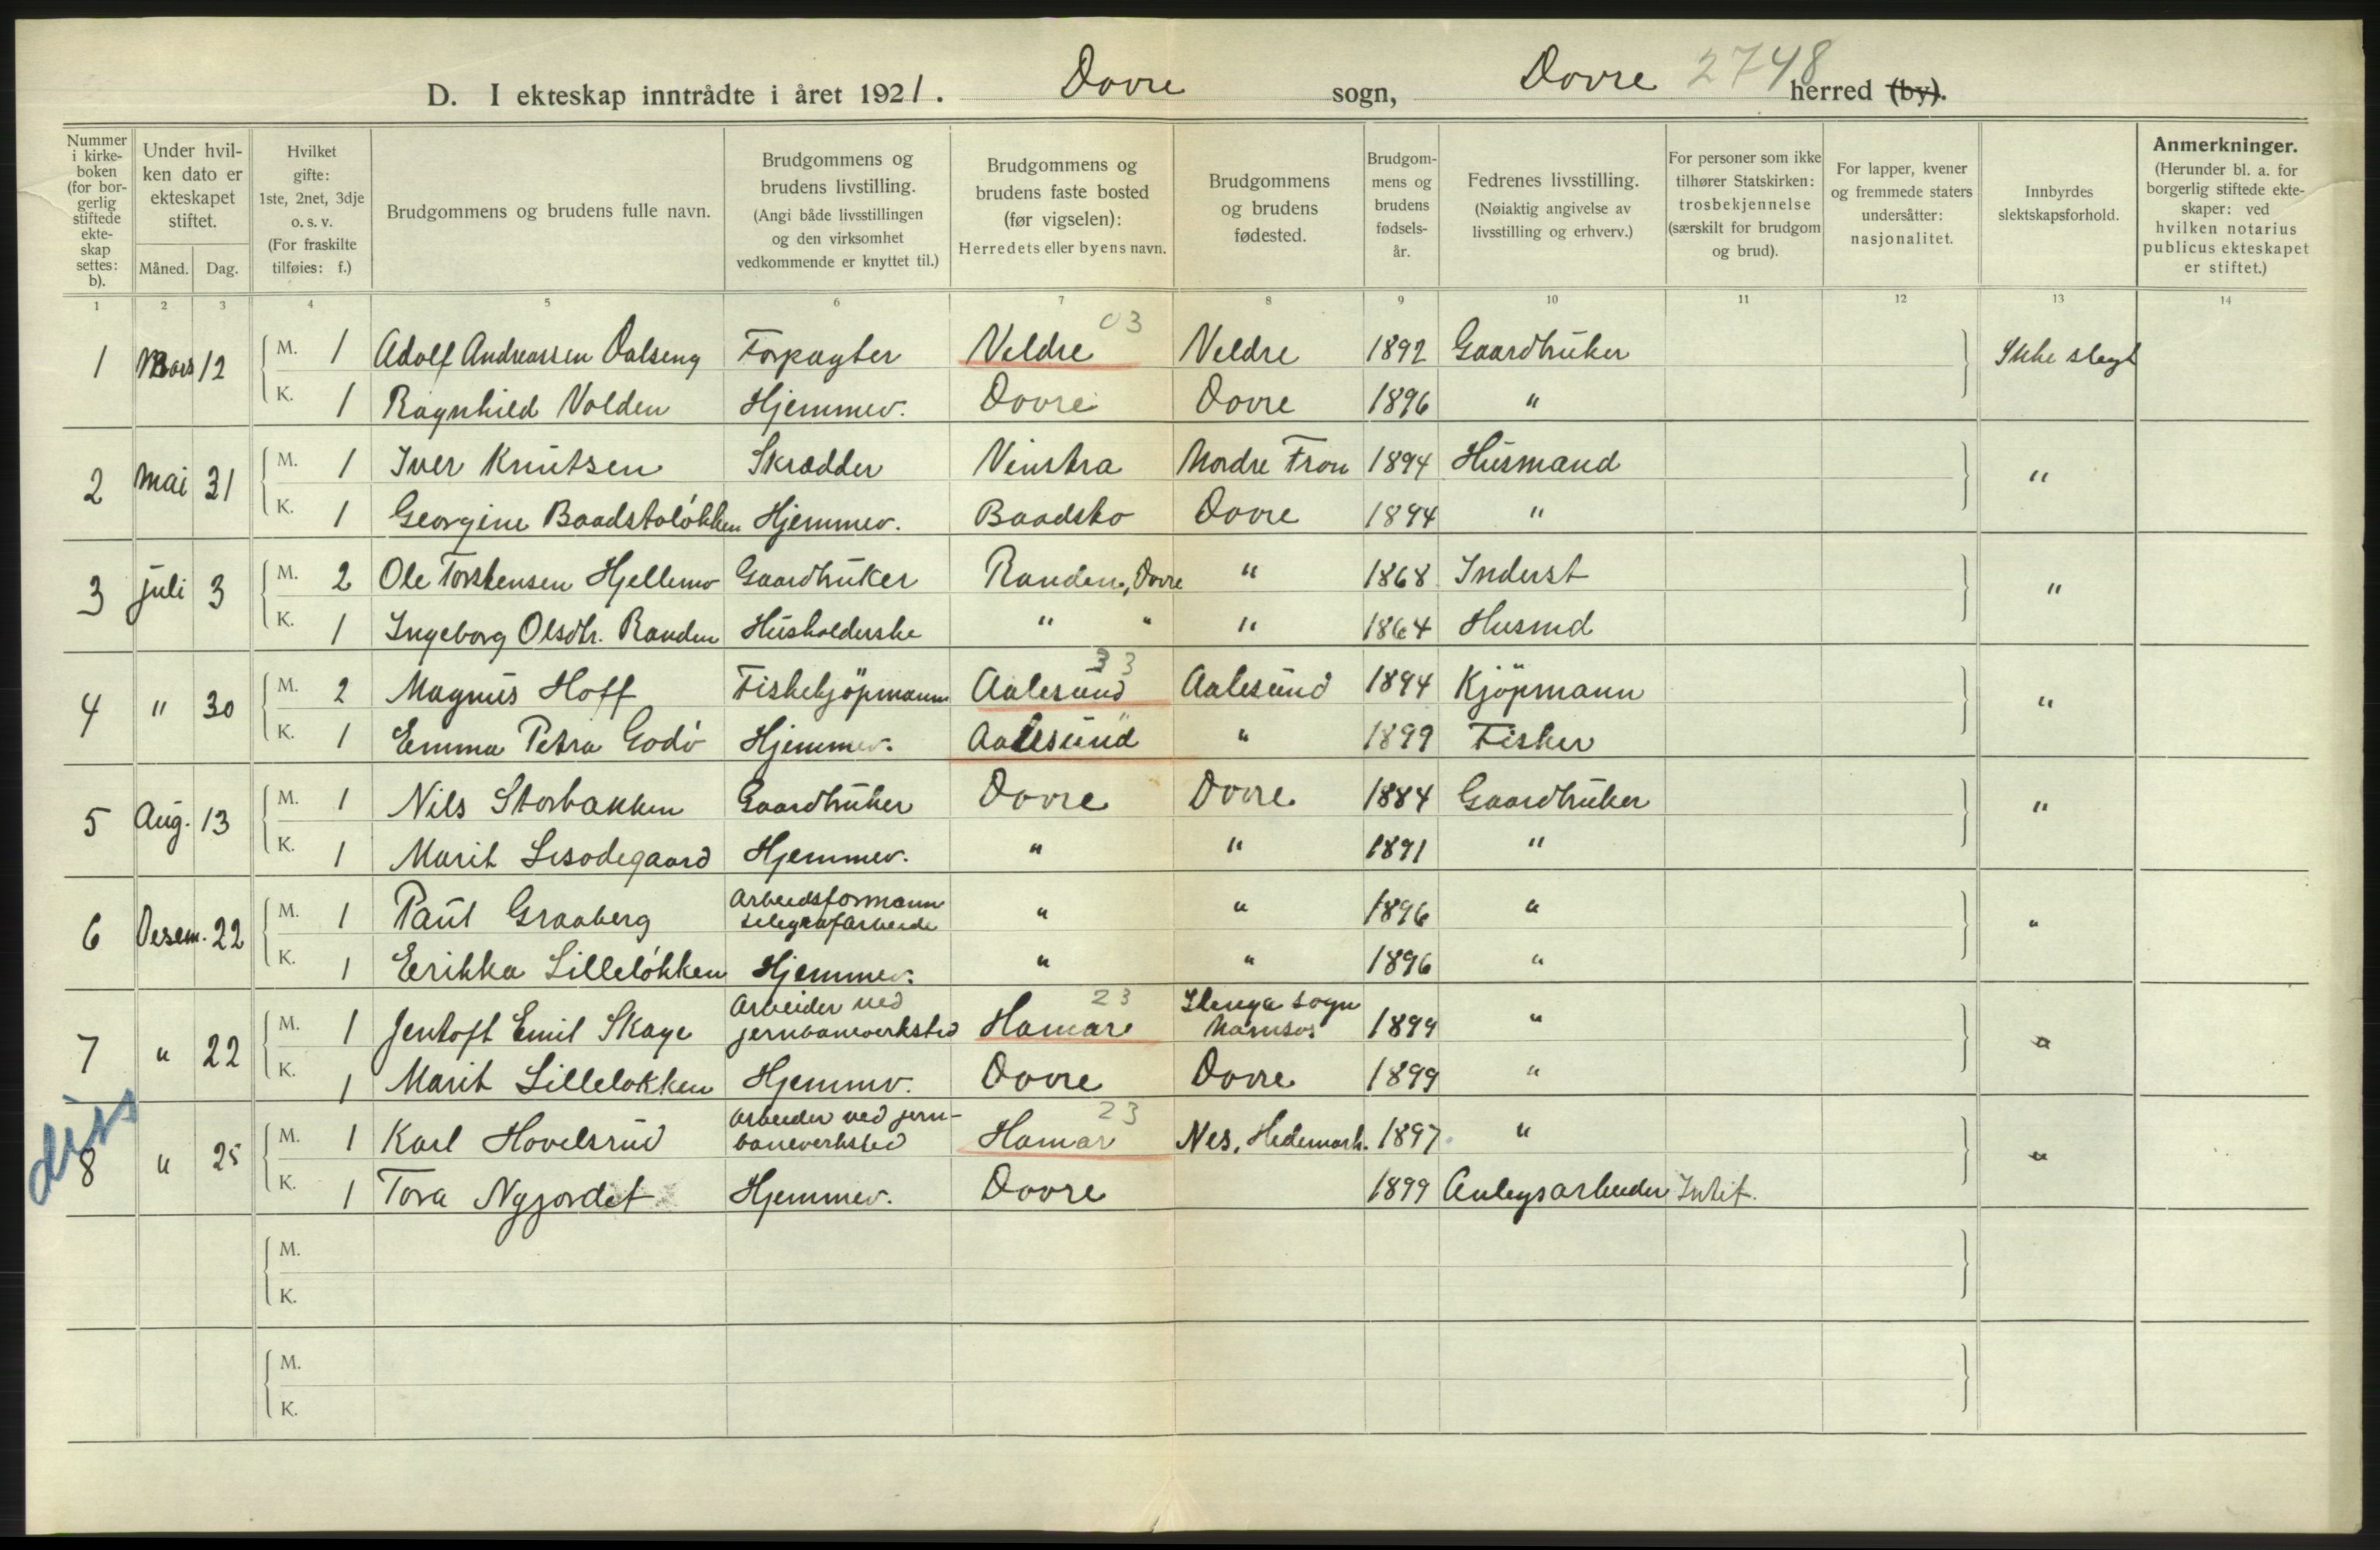 D. I ekteskap inntrådte i året 1921. Dovre sogn, Dovre 2748 herred (by).
Nummer i kirke-boken (for bor-gerlig stiftede ekte-skap settes: b).
Under hvil-ken dato er ekteskapet stiftet.
Måned. Dag.
Hvilket gifte: 1ste, 2net, 3dje o. s. v. (For fraskilte tilføies: f.)
Brudgommens og brudens fulle navn.
Brudgommens og brudens livstilling. (Angi både livsstillingen og den virksomhet vedkommende er knyttet til.)
Brudgommens og brudens faste bosted (før vigselen): Herredets eller byens navn.
Brudgommens og brudens fødested.
Brudgom-mens og brudens fødsels-år.
Fedrenes livsstilling. (Nøiaktig angivelse av livsstilling og erhverv.)
For personer som ikke tilhører Statskirken: trosbekjennelse (særskilt for brudgom og brud).
For lapper, kvener og fremmede staters undersåtter: nasjonalitet.
Innbyrdes slektskapsforhold.
Anmerkninger. (Herunder bl. a. for borgerlig stiftede ekte-skaper: ved hvilken notarius publicus ekteskapet er stiftet.)
1 2 3 4 5 6 7 8 9 10 11 12 13 14
03
1 Mars 12 M. 1 Adolf Andreassen Dalseng Forpagter Veldre Veldre 1892 Gaardbruker Ikke slegt
K. 1 Ragnhild Volden Hjemmev. Dovre Dovre 1896 "
2 Mai 31 M. 1 Iver Knutsen Skrædder Vinstra Nordre Fron 1894 Husmand "
K. 1 Georgine Baadstoløkken Hjemmev. Baadsto Dovre 1894 "
3 juli 3 M. 2 Ole Torstensen Hjellemo Gaardbruker Randen, Dovre " 1868 Inderst "
K. 1 Ingeborg Olsdtr. Randen Husholderske " " " 1864 Husmd
33
4 " 30 M. 2 Magnus Hoff Fiskekjöpmann Aalesund Aalesund 1894 Kjöpmann "
K. 1 Emma Petra Godø Hjemmev. Aalesund " 1899 Fisker
5 Aug. 13 M. 1 Nils Storbakken Gaardbruker Dovre Dovre 1884 Gaardbruker "
K. 1 Marit Lisødegaard Hjemmev. " " 1891 "
6 Desem. 22 M. 1 Paul Graaberg Arbeidsformann telegrafarbeide " " 1896 " "
K. 1 Erikka Lilleløkken Hjemmev. " " 1896 "
23
7 " 22 M. 1 Jentoft Emil Skage Arbeider ved jernbaneverksted Hamar sogn Namsos 1899 " "
K. 1 Marit Lilleløkken Hjemmv. Dovre Dovre 1899 "
diss
23
8 " 25 M. 1 Karl Hovelsrud Arbeider ved jern-baneverksted Hamar Nes, Hedemark. 1897 " "
K. 1 Tora Nygjordet Hjemmev. Dovre 1899 Anlegsarbeider
M.
K.
M.
K.